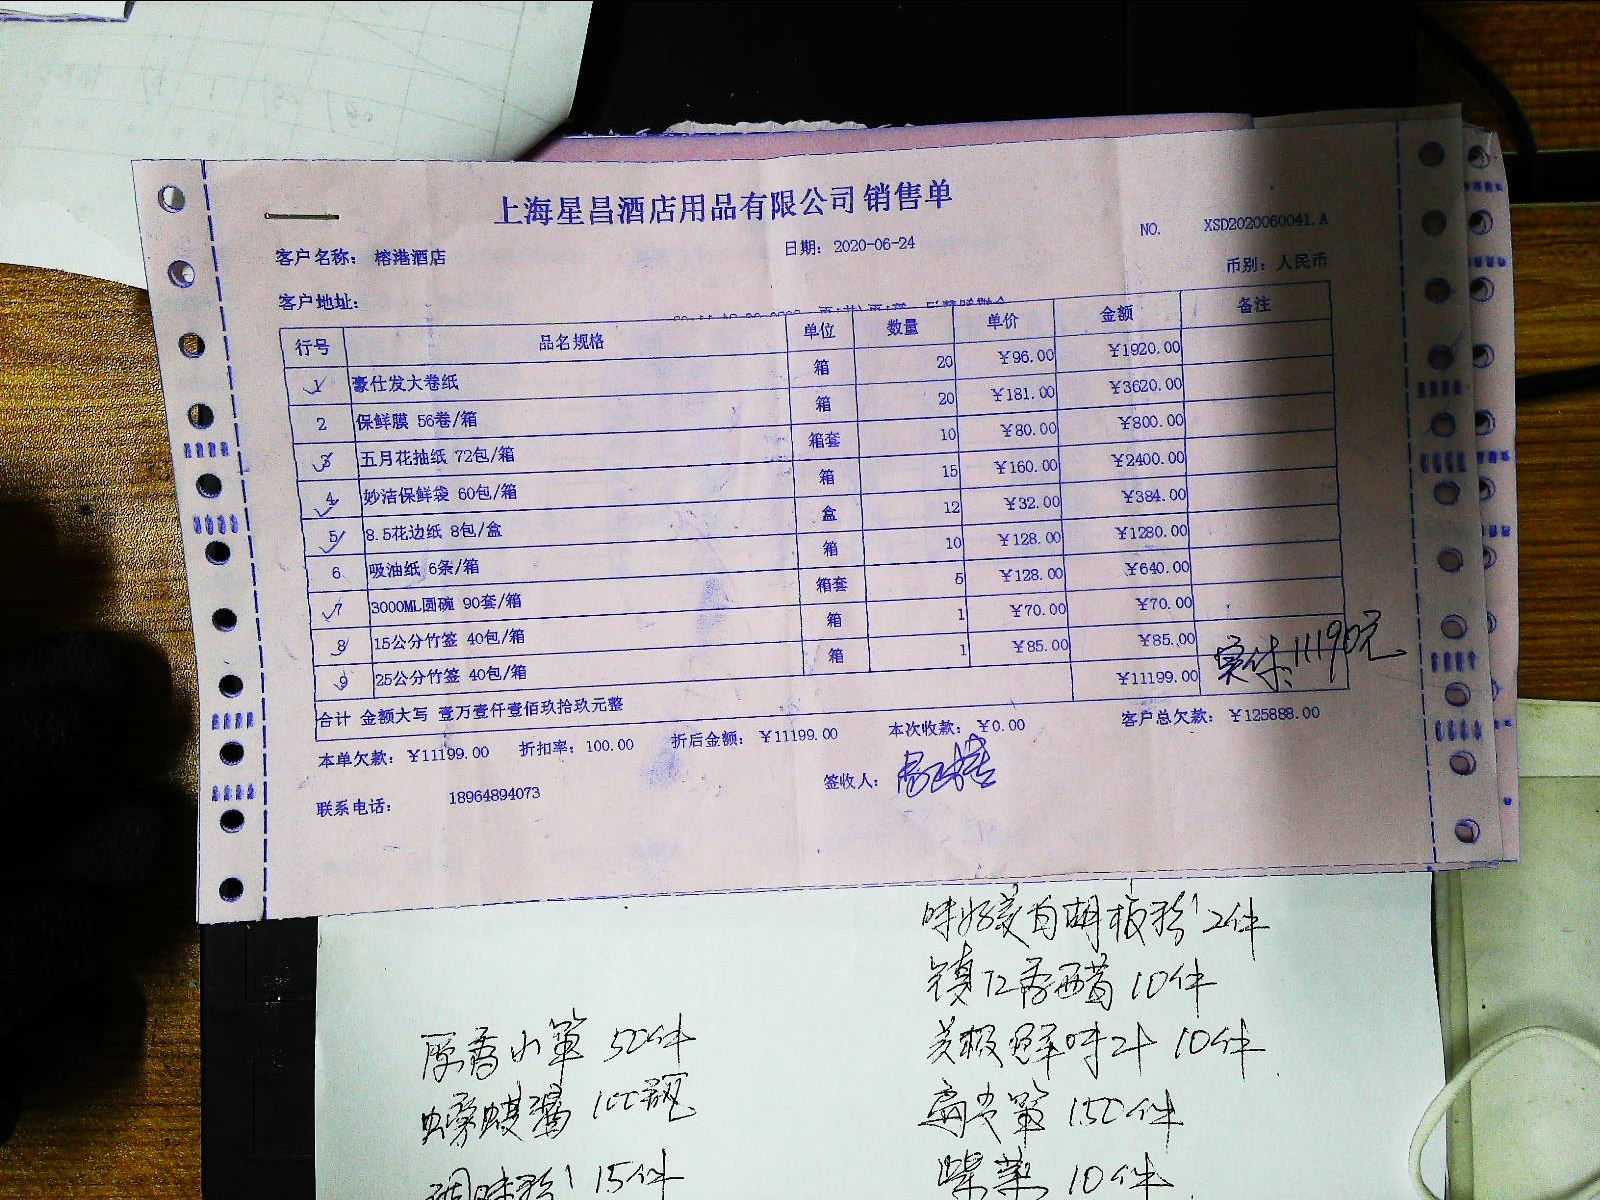 上海星昌酒店用品有限公司 销售单
客户名称： 榕港酒店 日期：2020-06-24 NO. XSD2020060041.A
客户地址： 币别：人民币
行号 品名规格 单位 数量 单价 金额 备注
1 豪仕发大卷纸 箱 20 ¥96.00 ¥1920.00
2 保鲜膜 56卷/箱 箱 20 ¥181.00 ¥3620.00
3 五月花抽纸 72包/箱 箱套 10 ¥80.00 ¥800.00
4 妙洁保鲜袋 60包/箱 箱 15 ¥160.00 ¥2400.00
5 8.5花边纸 8包/盒 盒 12 ¥32.00 ¥384.00
6 吸油纸 6条/箱 箱 10 ¥128.00 ¥1280.00
7 3000ML圆碗 90套/箱 箱套 5 ¥128.00 ¥640.00
8 15公分竹签 40包/箱 箱 1 ¥70.00 ¥70.00
9 25公分竹签 40包/箱 箱 1 ¥85.00 ¥85.00
合计 金额大写 壹万壹仟壹佰玖拾玖元整 ¥11199.00 11190元
本单欠款：¥11199.00 折扣率：100.00 折后金额：¥11199.00 本次收款：¥0.00 客户总欠款：¥125888.00
联系电话： 18964894073 签收人：
味好美白胡椒粉 2件
镇江香醋 10件
美极鲜味汁 10件
150件
紫菜 10件
50件
100瓶
调味粉 15件